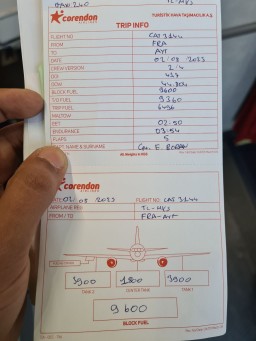 Corendon
AIRLINES
TURİSTİK HAVA TAŞIMACILIK A.Ş.
TRIP INFO
FLIGHT NO CAI 3144
FROM FRA
TO AYT
DATE 02/08/2023
CREW VERSION 2/4
DOI
DOW
BLOCK FUEL 9600
T/O FUEL 9360
TRIP FUEL 6496
MALTOW
EET 02:50
ENDURANCE 03:54
FLAPS 5
NAME & SURNAME
Corendon
AIRLINES
DATE 02 08 2023 FLIGHT NO CAI 3144
AIRPLANE REG
FROM / TO FRA-AYT
3900 1800 3900
TANK 2 CENTER TANK TANK 1
9600
BLOCK FUEL